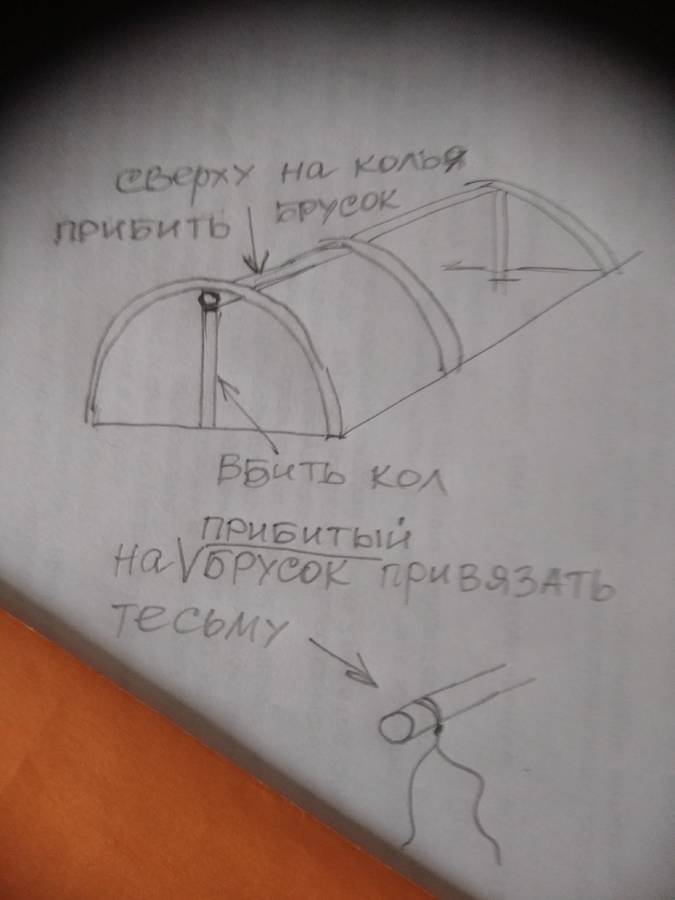 сверху на колья
прибить брусок
Вбить кол
прибитый
на √брусок привязать
тесьму